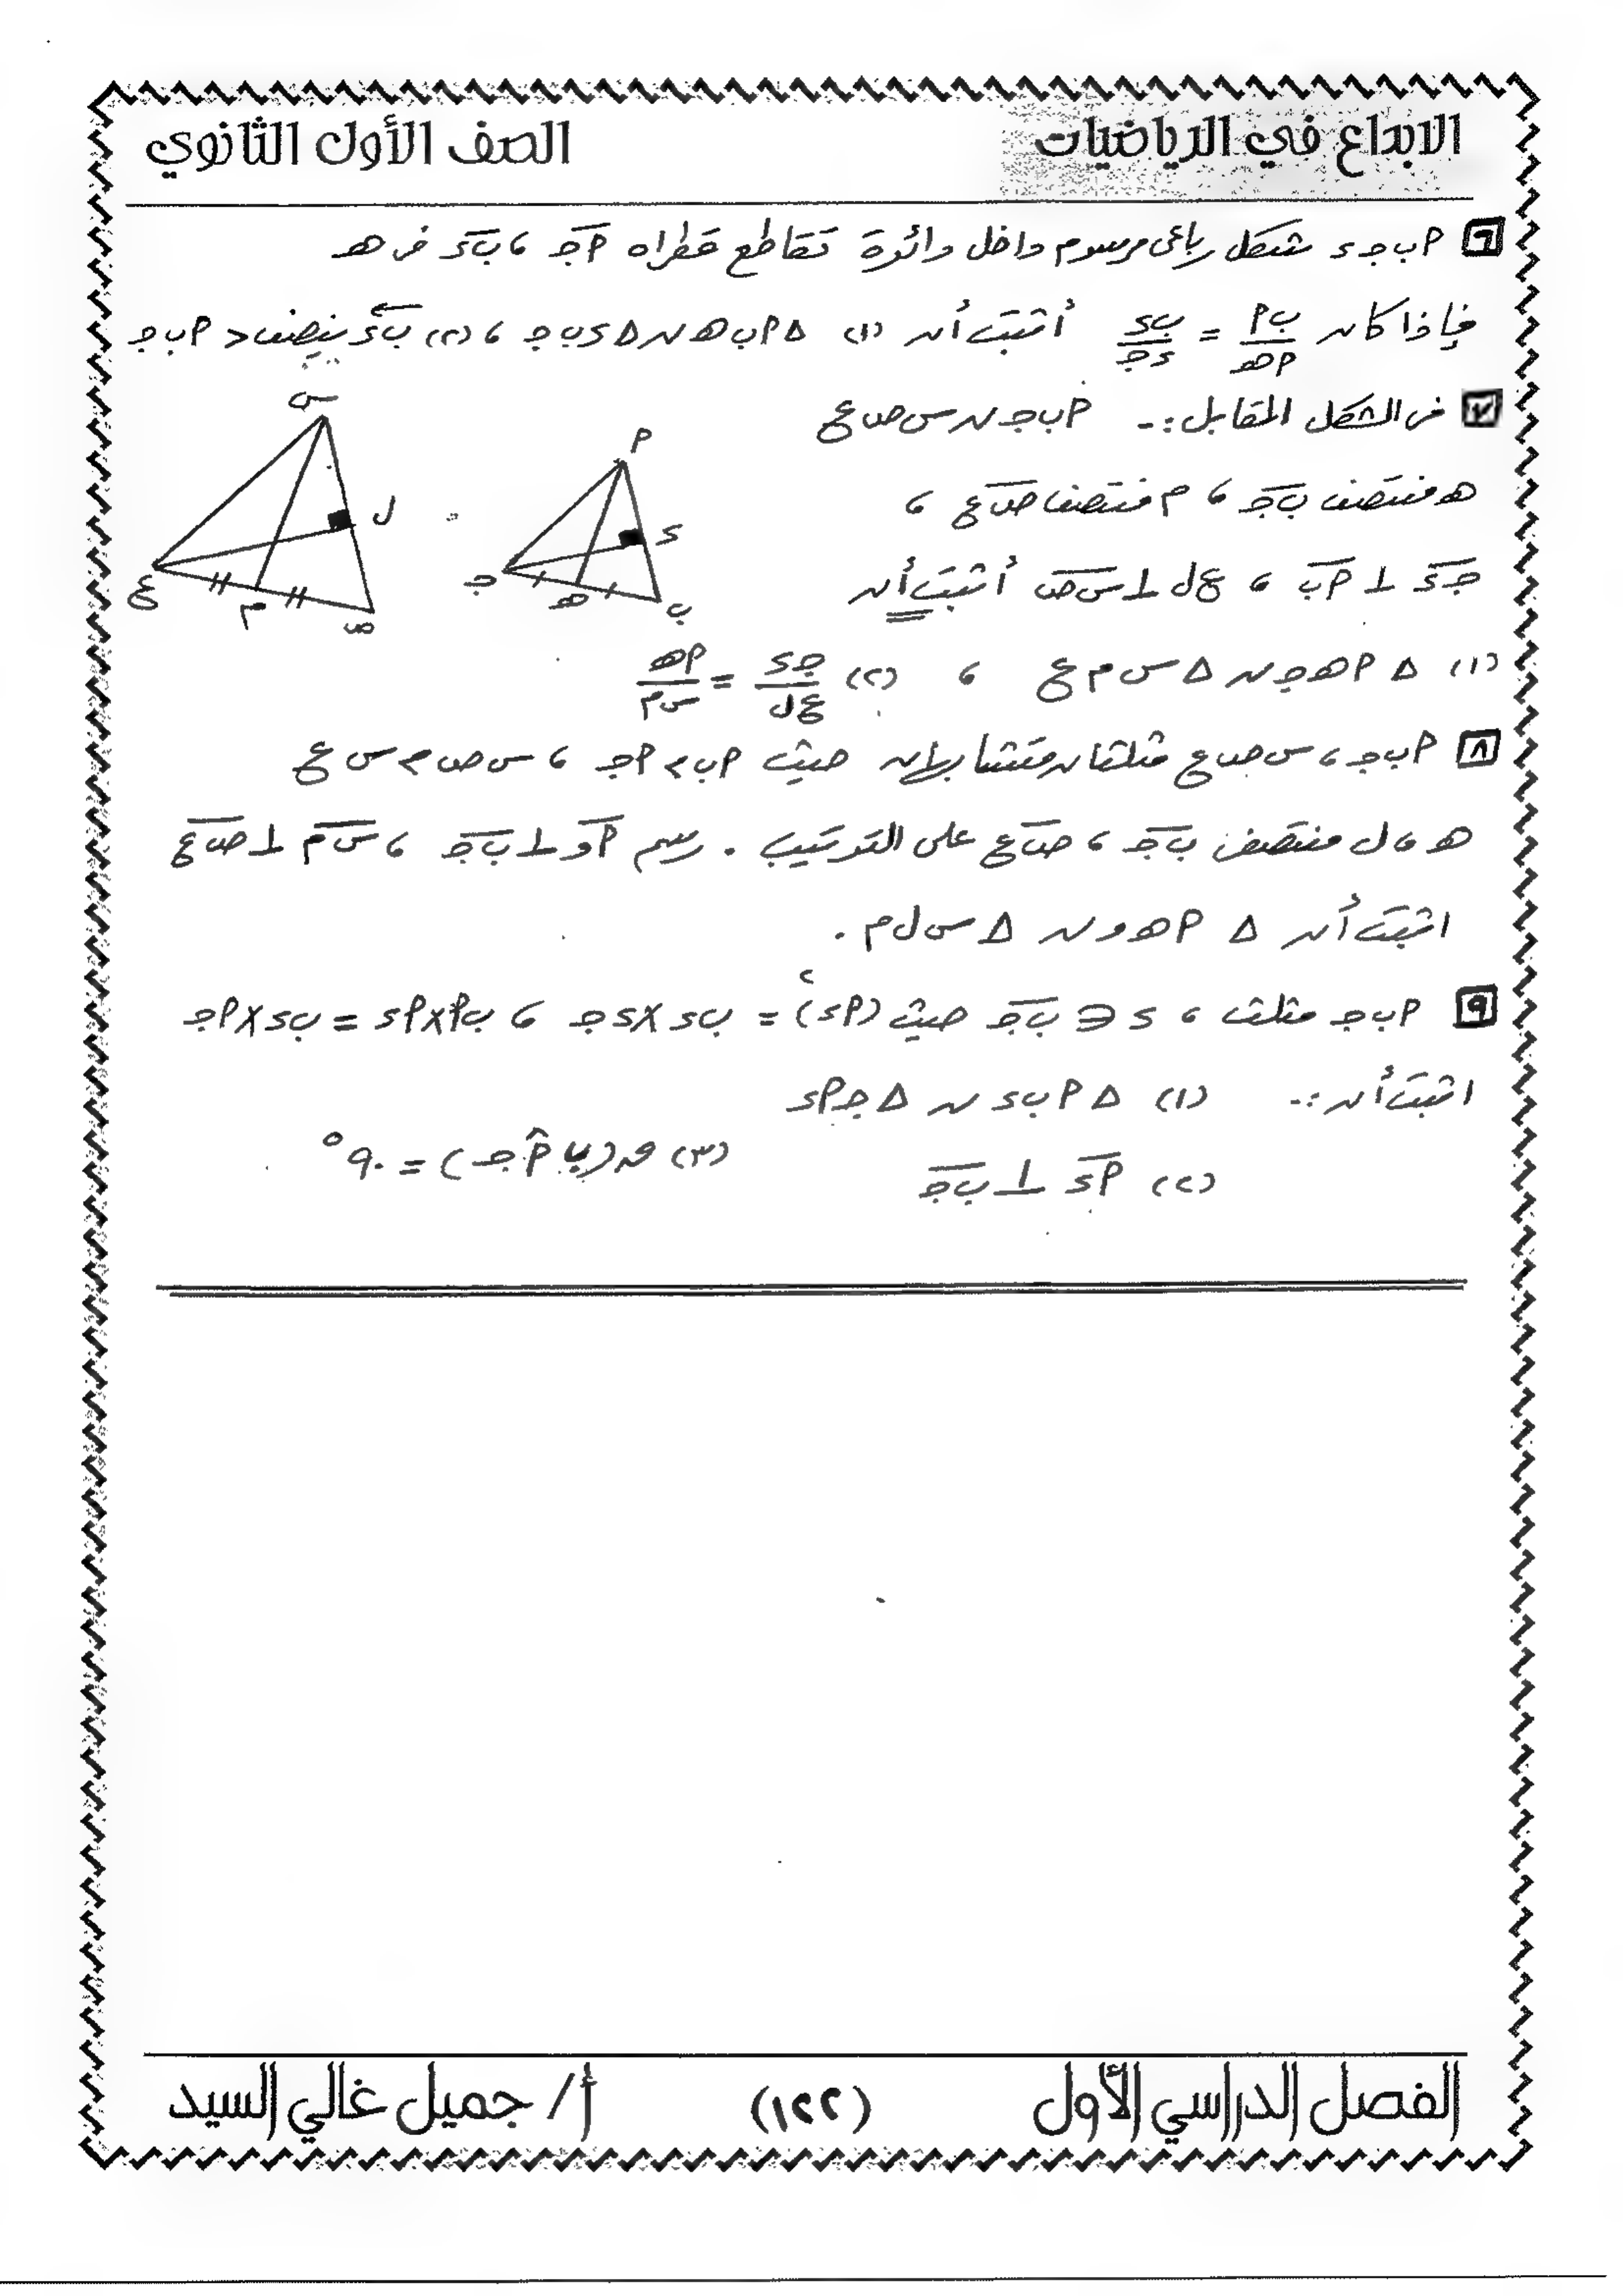 الابداع في الرياضيات
الصف الأول الثانوي
٦ P ب ج د شكل رباعى مرسوم داخل دائرة تقاطع قطراه P ج ، ب د فى هـ
فإذا كان ب P / P هـ = ب د / د ج أثبت أن (١) Δ P ب هـ ~ Δ د ب ج ، (٢) ب د ينصف > P ب ج
٧ فى الشكل المقابل :- P ب ج ~ س ص ع
هـ منتصف ب ج ، م منتصف ص ع ،
ج د ⊥ P ب ، ع ل ⊥ س ص أثبت أن
(١) Δ P هـ ج ~ Δ س م ع ، (٢) ج د / ع ل = P هـ / س م
P د ج هـ ب
س ل ع م ص
٨ P ب ج ، س ص ع مثلثان متشابهان حيث P ب > P ج ، س ص > س ع
هـ ، ل منتصفى ب ج ، ص ع على الترتيب . رسم P و ⊥ ب ج ، س م ⊥ ص ع
اثبت أن Δ P هـ و ~ Δ س ل م .
٩ P ب ج مثلث ، د ∈ ب ج حيث (P د)٢ = ب د × د ج ، ب P × P د = ب د × P ج
اثبت أن :- (١) Δ P ب د ~ Δ ج P د
(٢) P د ⊥ ب ج (٣) ق (ب P̂ ج) = ٩٠°
الفصل الدراسي الأول
(١٢٢)
أ/ جميل غالي السيد